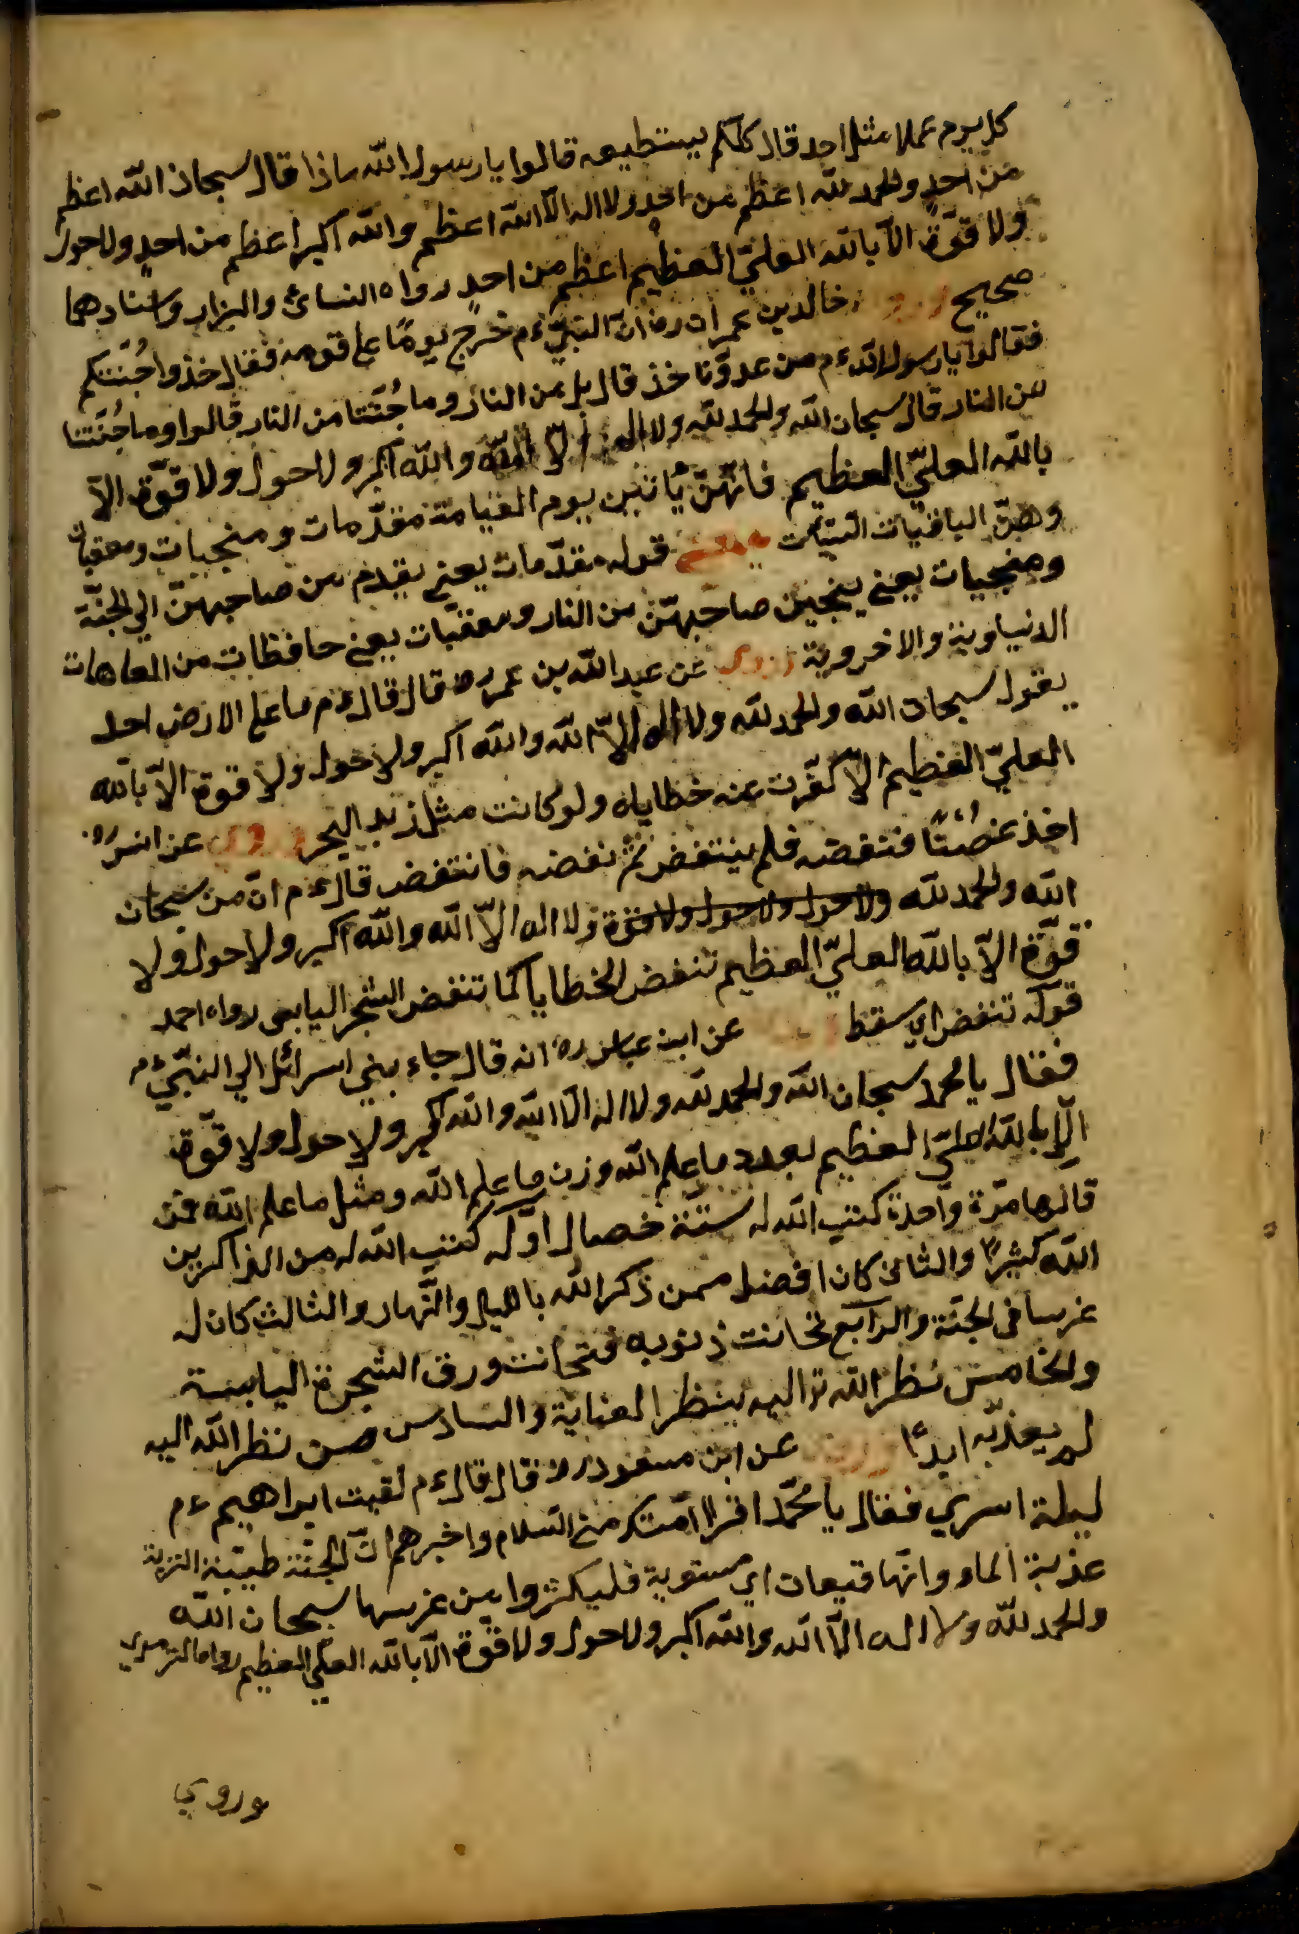 كل يوم عملا مثل احد قال كلكم يستطيعه قالوا يا رسول الله ماذا قال سبحان الله اعظم
من احد والحمد لله اعظم من احد ولا اله الا الله اعظم والله اكبر اعظم من احد ولا حول
ولا قوّة الّا بالله العليّ العظيم اعظم من احد رواه النسائ والبزار واسنادهما
صحيح وروي خالد بن عمران رض ان النبيّ ءم خرج يومًا على قومه فقال خذوا جُنّتكم
فقالوا يا رسول الله ءم من عدوّنا خذ قال بل من النار وما جُنّتنا من النار قالوا وما جُنّتنا
من النار قال سبحان الله والحمد لله ولا اله الّا الله والله اكبر ولا حول ولا قوّة الّا
بالله العليّ العظيم فانّهنّ يأتين يوم القيامة مقدّمات ومنجيات ومعقبات
وهنّ الباقيات قوله مقدّمات يعني يقدم من صاحبهنّ الي الجنّة
ومنجيات يعني ينجين صاحبهنّ من النار ومعقبّات يعني حافظات من العاهات
الدنياوية والاخروية وروي عن عبد الله بن عمر رض قال قال ءم ما على الارض احد
يقول سبحان الله والحمد لله ولا اله الّا الله والله اكبر ولا حول ولا قوة الّا بالله
العليّ العظيم الّا كفّرت عنه خطاياه ولو كانت مثل زبد البحر وروي عن انس رض
اخذ غصنًا فنفضه فلم ينتفض ثمّ نفضه فانتفض قال ءم انّ من سبحان
الله والحمد لله ولا حول ولا حول ولا قوة ولا اله الّا الله والله اكبر ولا حول ولا
قوّة الّا بالله العليّ العظيم تنفض الخطايا كما تنفض الشجر اليابس رواه احمد
قوله تنفض اي سقط عن ابن عباس رض انه قال جاء بني اسرائل الي النبيّ ءم
فقال يا محمد سبحان الله والحمد لله ولا اله الّا الله والله اكبر ولا حول ولا قوّة
الّا بالله العليّ العظيم بعدد ما علم الله وزن ما علم الله ومثل ما علم الله فمن
قالها مرّة واحدة كتب الله له ستّة خصال اوّله كتب الله له من الذاكرين
الله كثيرًا والثاني كان افضل ممن ذكر الله بالليل والنّهار والثالث كان له
غرسا في الجنّة والرابع تحانت ذنوبه فتحانت ورق الشجرة اليابسة
والخامس نظر الله تع اليه بنظر العناية والسادس من نظر الله اليه
لم يعذّبه ابدًا وروي عن ابن مسعود رض قال قال ءم لقيت ابراهيم ءم
ليلة اسري فقال يا محمّد اقرا امّتك منّي السلام واخبرهم انّ الجنّة طيبّة التربة
عذبة الماء وانّها قيعان اي مستوية فليكثروا من غرسها سبحان الله
والحمد لله ولا اله الّا الله والله اكبر ولا حول ولا قوّة الّا بالله العليّ العظيم رواه الترمدي
وروي